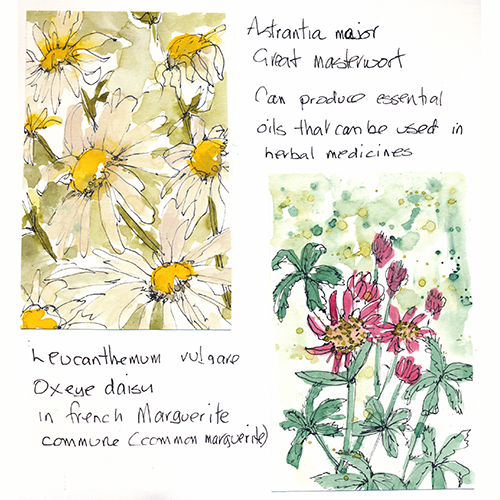 Astrantia major
Great masterwort
Can produce essential
oils that can be used in
herbal medicines
Leucanthemum vulgare
Oxeye daisy
in french Marguerite
commune (common marguerite)